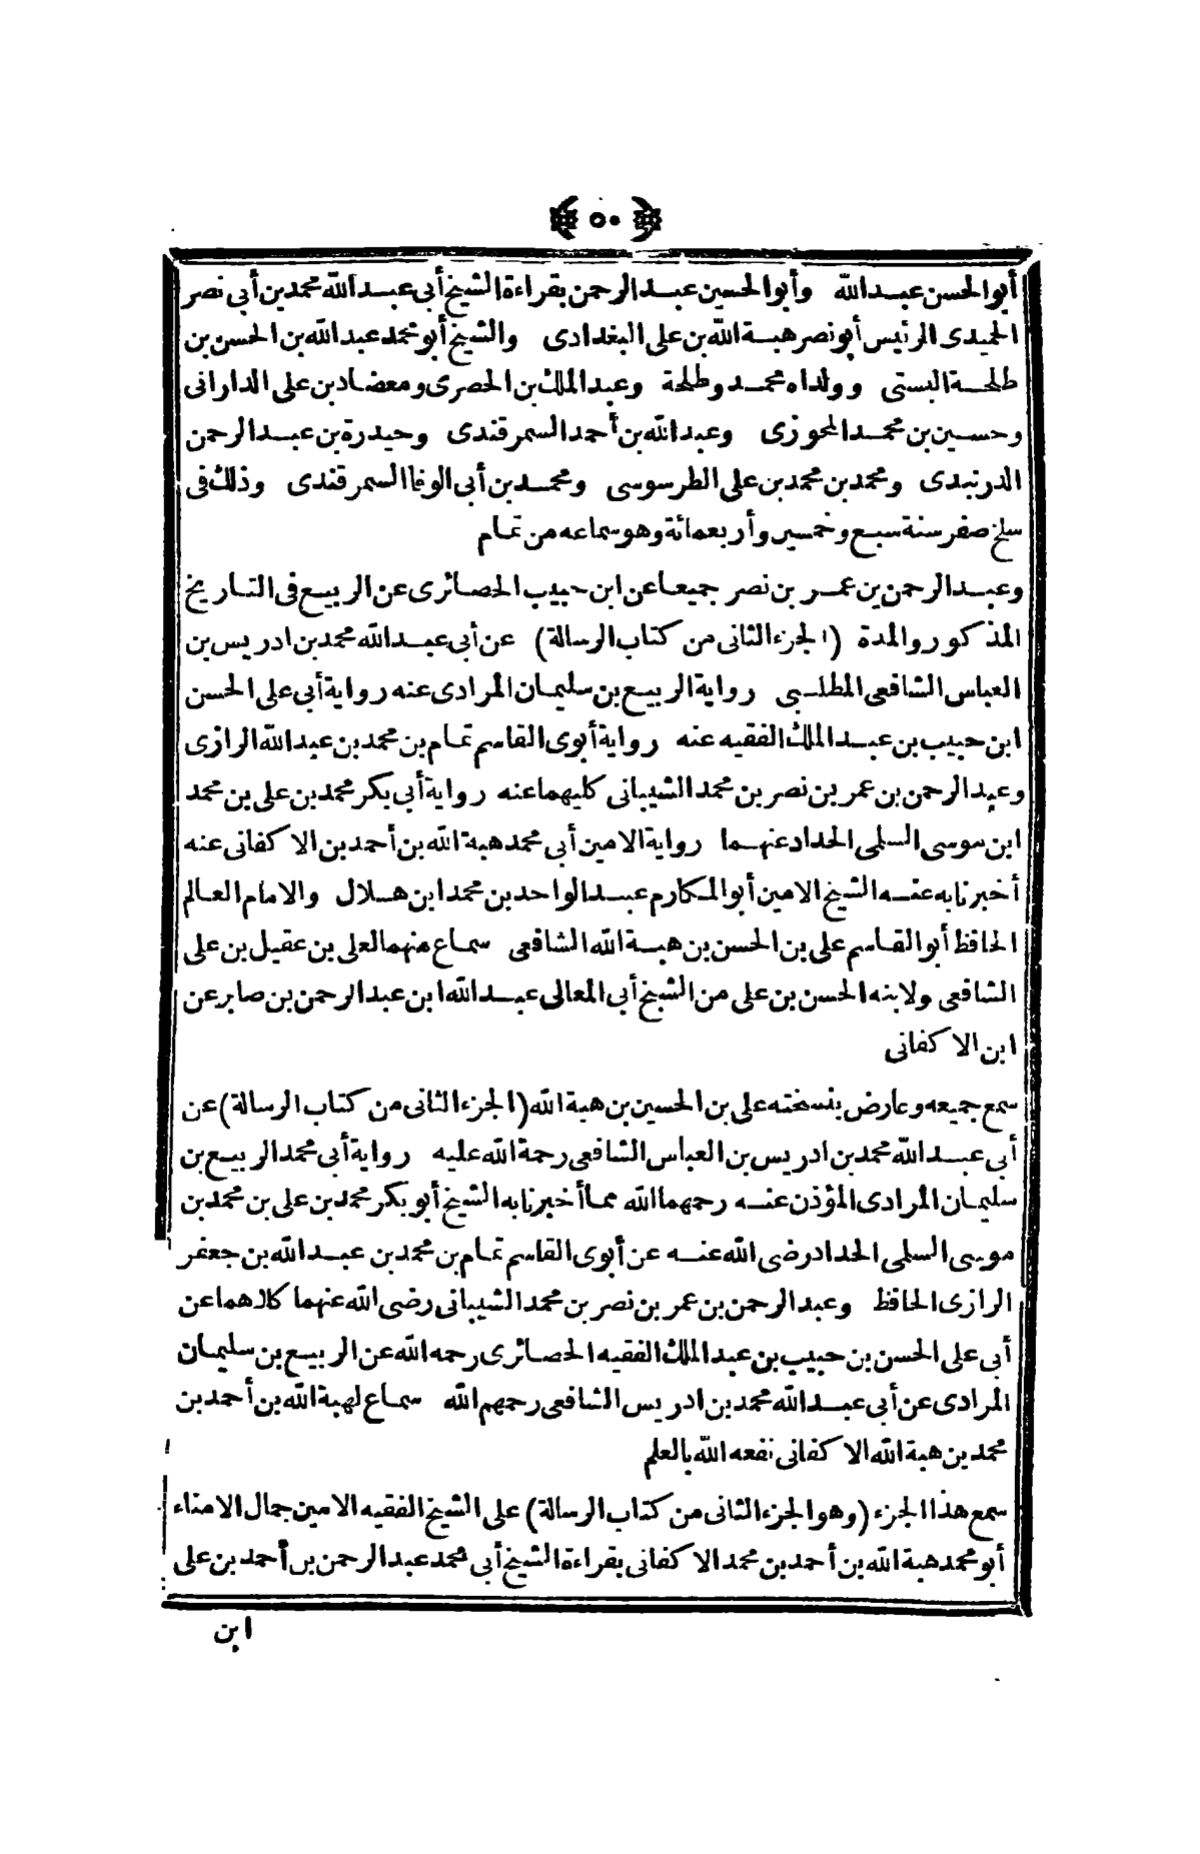 ﴿ ٥٠ ﴾
أبوالحسن عبدالله وأبوالحسين عبدالرحمن بقراءة الشيخ أبى عبدالله محمدبن أبى نصر
الحميدى الرئيس أبو نصر هبة الله بن على البغدادى والشيخ أبو محمد عبدالله بن الحسن بن
طلحة البستى وولداه محمد وطلحة وعبدالملك بن الحصرى ومعضادبن على الدارانى
وحسين بن محمد المحوزى وعبدالله بن أحمد السمرقندى وحيدرة بن عبدالرحمن
الدرنبدى ومحمدبن محمدبن على الطرسوسى ومحمدبن أبى الوفاالسمرقندى وذلك فى
سلخ صفر سنة سبع وخمسين وأربعمائة وهو سماعه من تمام
وعبدالرحمن بن عمر بن نصر جميعا عن ابن حبيب الحصائرى عن الربيع فى التاريخ
المذكور والمدة (الجزء الثانى من كتاب الرسالة) عن أبى عبدالله محمدبن ادريس بن
العباس الشافعى المطلبى رواية الربيع بن سليمان المرادى عنه رواية أبى على الحسن
ابن حبيب بن عبدالملك الفقيه عنه رواية أبوى القاسم تمام بن محمدبن عبدالله الرازى
وعبدالرحمن بن عمر بن نصر بن محمد الشيبانى كليهما عنه رواية أبى بكر محمدبن على بن محمد
ابن موسى السلمى الحداد عنهما رواية الامين أبى محمد هبة الله بن أحمدبن الاكفانى عنه
أخبرنابه عنه الشيخ الامين أبوالمكارم عبدالواحدبن محمدابن هلال والامام العالم
الحافظ أبوالقاسم على بن الحسن بن هبة الله الشافعى سماع منهمالعلى بن عقيل بن على
الشافعى ولابنه الحسن بن على من الشيخ أبى المعالى عبدالله ابن عبدالرحمن بن صابر عن
ابن الاكفانى
سمع جميعه وعارض بنسخته على بن الحسين بن هبة الله (الجزء الثانى من كتاب الرسالة) عن
أبى عبدالله محمدبن ادريس بن العباس الشافعى رحمة الله عليه رواية أبى محمد الربيع بن
سليمان المرادى المؤذن عنه رحمهماالله مماأخبرنابه الشيخ أبو بكر محمدبن على بن محمدبن
موسى السلمى الحداد رضى الله عنه عن أبوى القاسم تمام بن محمدبن عبدالله بن جعفر
الرازى الحافظ وعبدالرحمن بن عمر بن نصر بن محمد الشيبانى رضى الله عنهما كلاهما عن
أبى على الحسن بن حبيب بن عبدالملك الفقيه الحصائرى رحمه الله عن الربيع بن سليمان
المرادى عن أبى عبدالله محمدبن ادريس الشافعى رحمهم الله سماع لهبة الله بن أحمدبن
محمدبن هبة الله الاكفانى نفعه الله بالعلم
سمع هذا الجزء (وهوالجزء الثانى من كتاب الرسالة) على الشيخ الفقيه الامين جمال الامناء
أبو محمد هبة الله بن أحمدبن محمد الاكفانى بقراءة الشيخ أبى محمد عبدالرحمن بن أحمدبن على
ابن